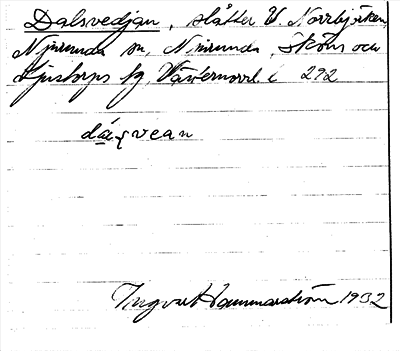 Dalsvedjan, slåtter V. Norrbjörken,
Njurunda sn, Njurunda, Sköns och
Ljustorps tg, Västernorrl. l 272
dálsvean
Ingvar Hammarström 1932